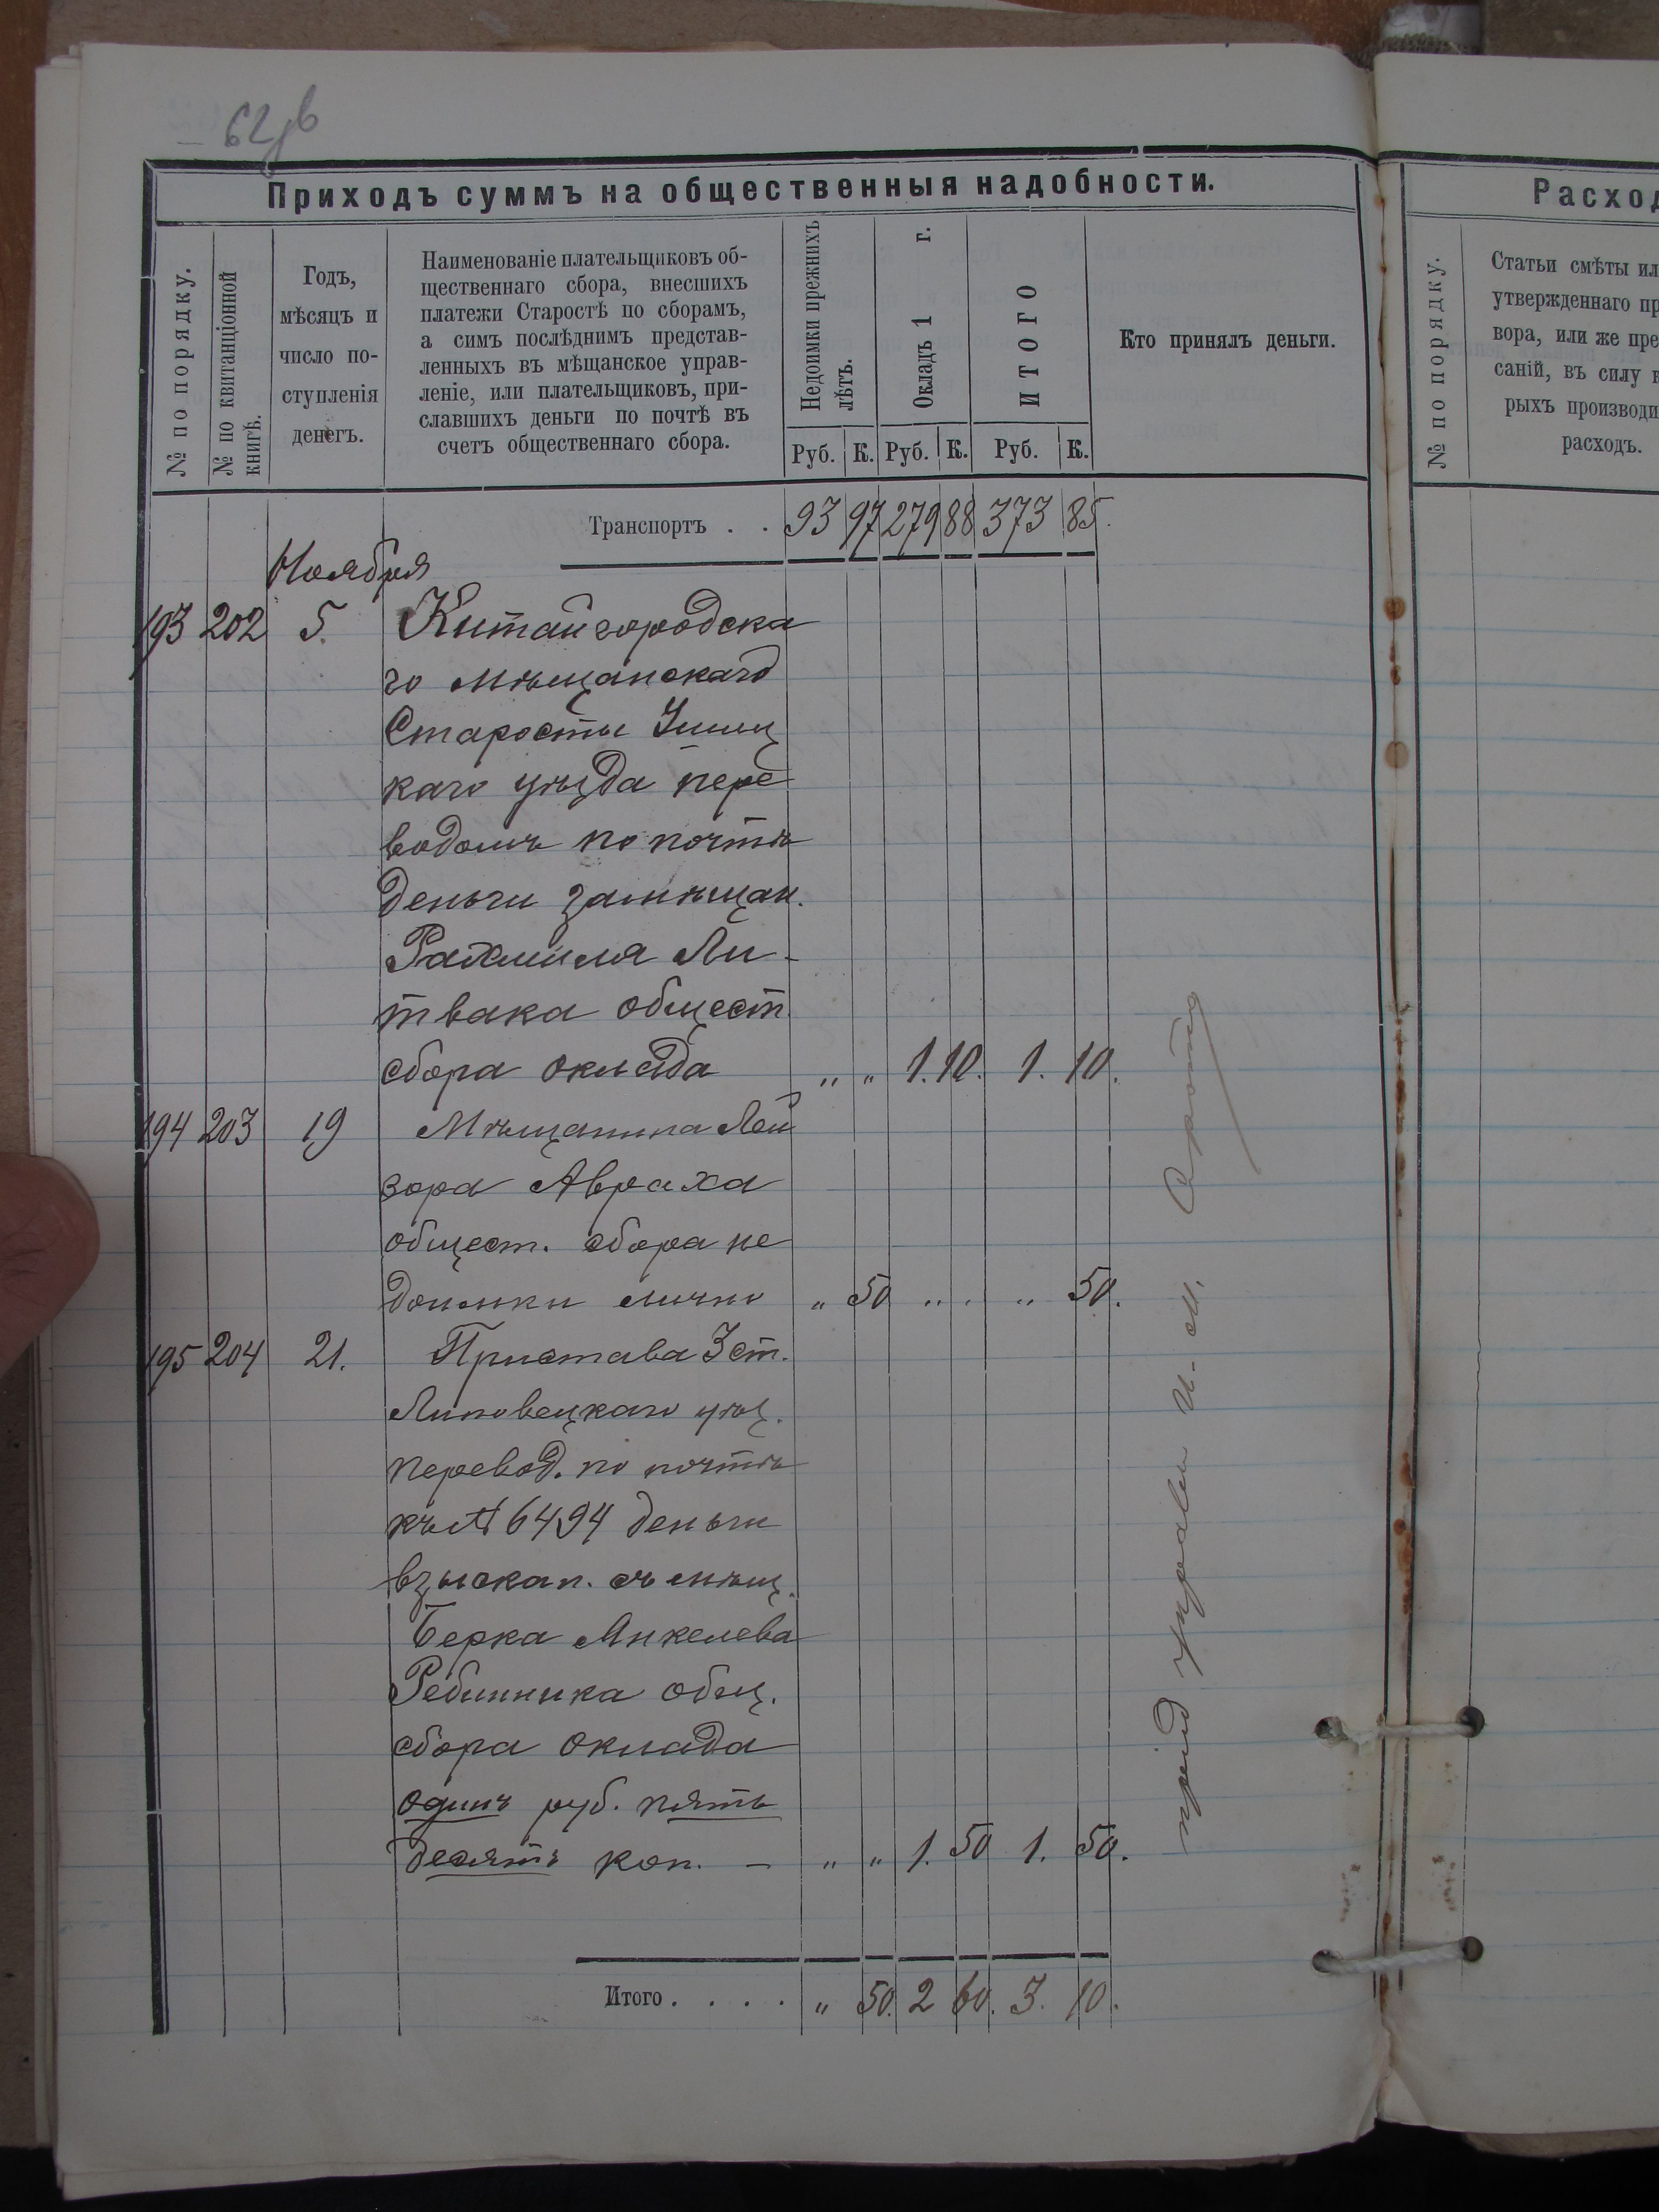 62 об
Приходъ суммъ на общественныя надобности.
№ по порядку.
№ по квитанціонной
книгѣ.
Годъ,
мѣсяцъ и
число по-
ступленія
денегъ.
Наименованіе плательщиковъ об-
щественнаго сбора, внесшихъ
платежи Старостѣ по сборамъ,
а симъ послѣднимъ представ-
ленныхъ въ мѣщанское управ-
леніе, или плательщиковъ, при-
славшихъ деньги по почтѣ въ
счетъ общественнаго сбора.
Недоимки прежнихъ
лѣтъ.
Окладъ 1 г.
ИТОГО
Руб. К. Руб. К. Руб. К.
Кто принялъ деньги.
Транспортъ . . 93 97 279 88 373 85.
Ноября
193 202 5. Китайгородска
го мѣщанскаго
Старосты Ушиц
каго уѣзда пере
водомъ по почтѣ
деньги за мѣщан.
Рахмиля Ли-
твака общест.
сбора оклада „ „ 1. 10. 1. 10.
194 203 19 Мѣщанина Лей
зора Авраха
общест. сбора не
доимки лично „ 50 „ . „ 50.
195 204 21. Пристава 3 ст.
Липовецкаго уѣз.
перевод. по почтѣ
къ № 6494 деньги
взыскан. съ мѣщ.
Берка Янкелева
Рыбинника общ.
сбора оклада
одинъ руб. пять
десятъ коп. — „ „ 1. 50 1. 50.
Итого . . . . „ 50. 2 60. 3. 10.
Расход
№ по порядку.
Статьи смѣты ил
утвержденнаго пр
вора, или же пре
саній, въ силу к
рыхъ производи
расходъ.